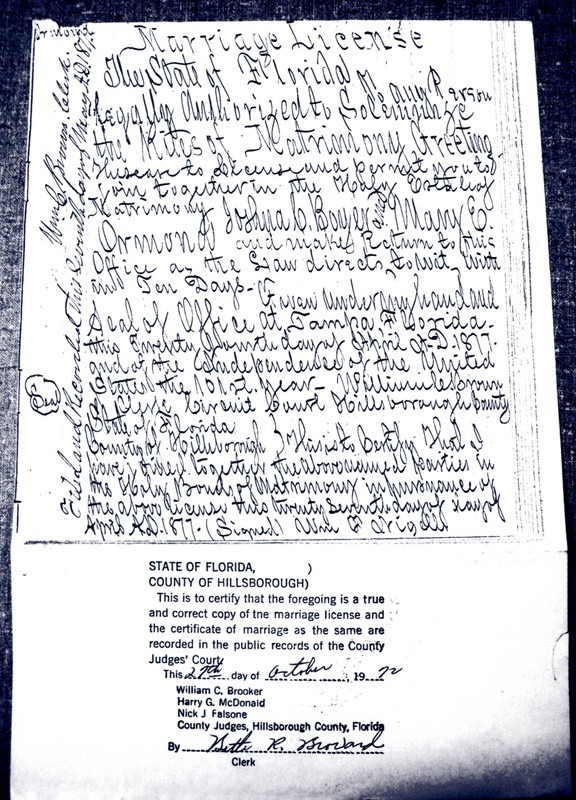 Marriage License
The State of Florida To any Person
legally Authorized to Solemnize
the Rites of Matrimony Greeting
These are to License and permit you to
join together in the Holy Estate of
Matrimony Joshua C. Boyer and Mary E.
Ormond and make Return to this
Office as the Law directs, to wit, with
in Ten Days- Given under my hand and
Seal of Office at Tampa Florida-
this Twenty day of April A.D. 1877.
and of the Independence of the United
States the 101st Year- William C. Brown
Clerk Circuit Court Hillsborough County
State of Florida
County of Hillsborough } This is to Certify That I
have joined together the above named parties in
the Holy Bonds of Matrimony in pursuance of
the above license this twenty Seventh day of
April A.D. 1877. (Signed) Wm
Seal
Filed and Recorded This Seventh day of 1877
Wm C. Brown Clerk
STATE OF FLORIDA, )
COUNTY OF HILLSBOROUGH)
This is to certify that the foregoing is a true
and correct copy of the marriage license and
the certificate of marriage as the same are
recorded in the public records of the County
Judges' Court.
This 27th day of October, 1972
William C. Brooker
Harry G. McDonald
Nick J Falsone
County Judges, Hillsborough County, Florida
By Bette R.
Clerk